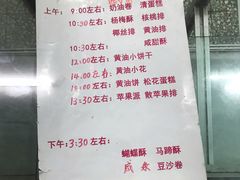 上午: 9:00左右: 奶油卷 清蛋糕
10:30左右: 杨梅酥 核桃排
椰丝排 黄油排
10:30左右 咸甜酥
12:00左右: 黄油小饼干
14:00左右 黄油小花
14:00左右: 黄油饼 松花蛋糕
13:30左右: 苹果派 散苹果排
下午: 3:30左右:
蝴蝶酥 马蹄酥
豆沙卷